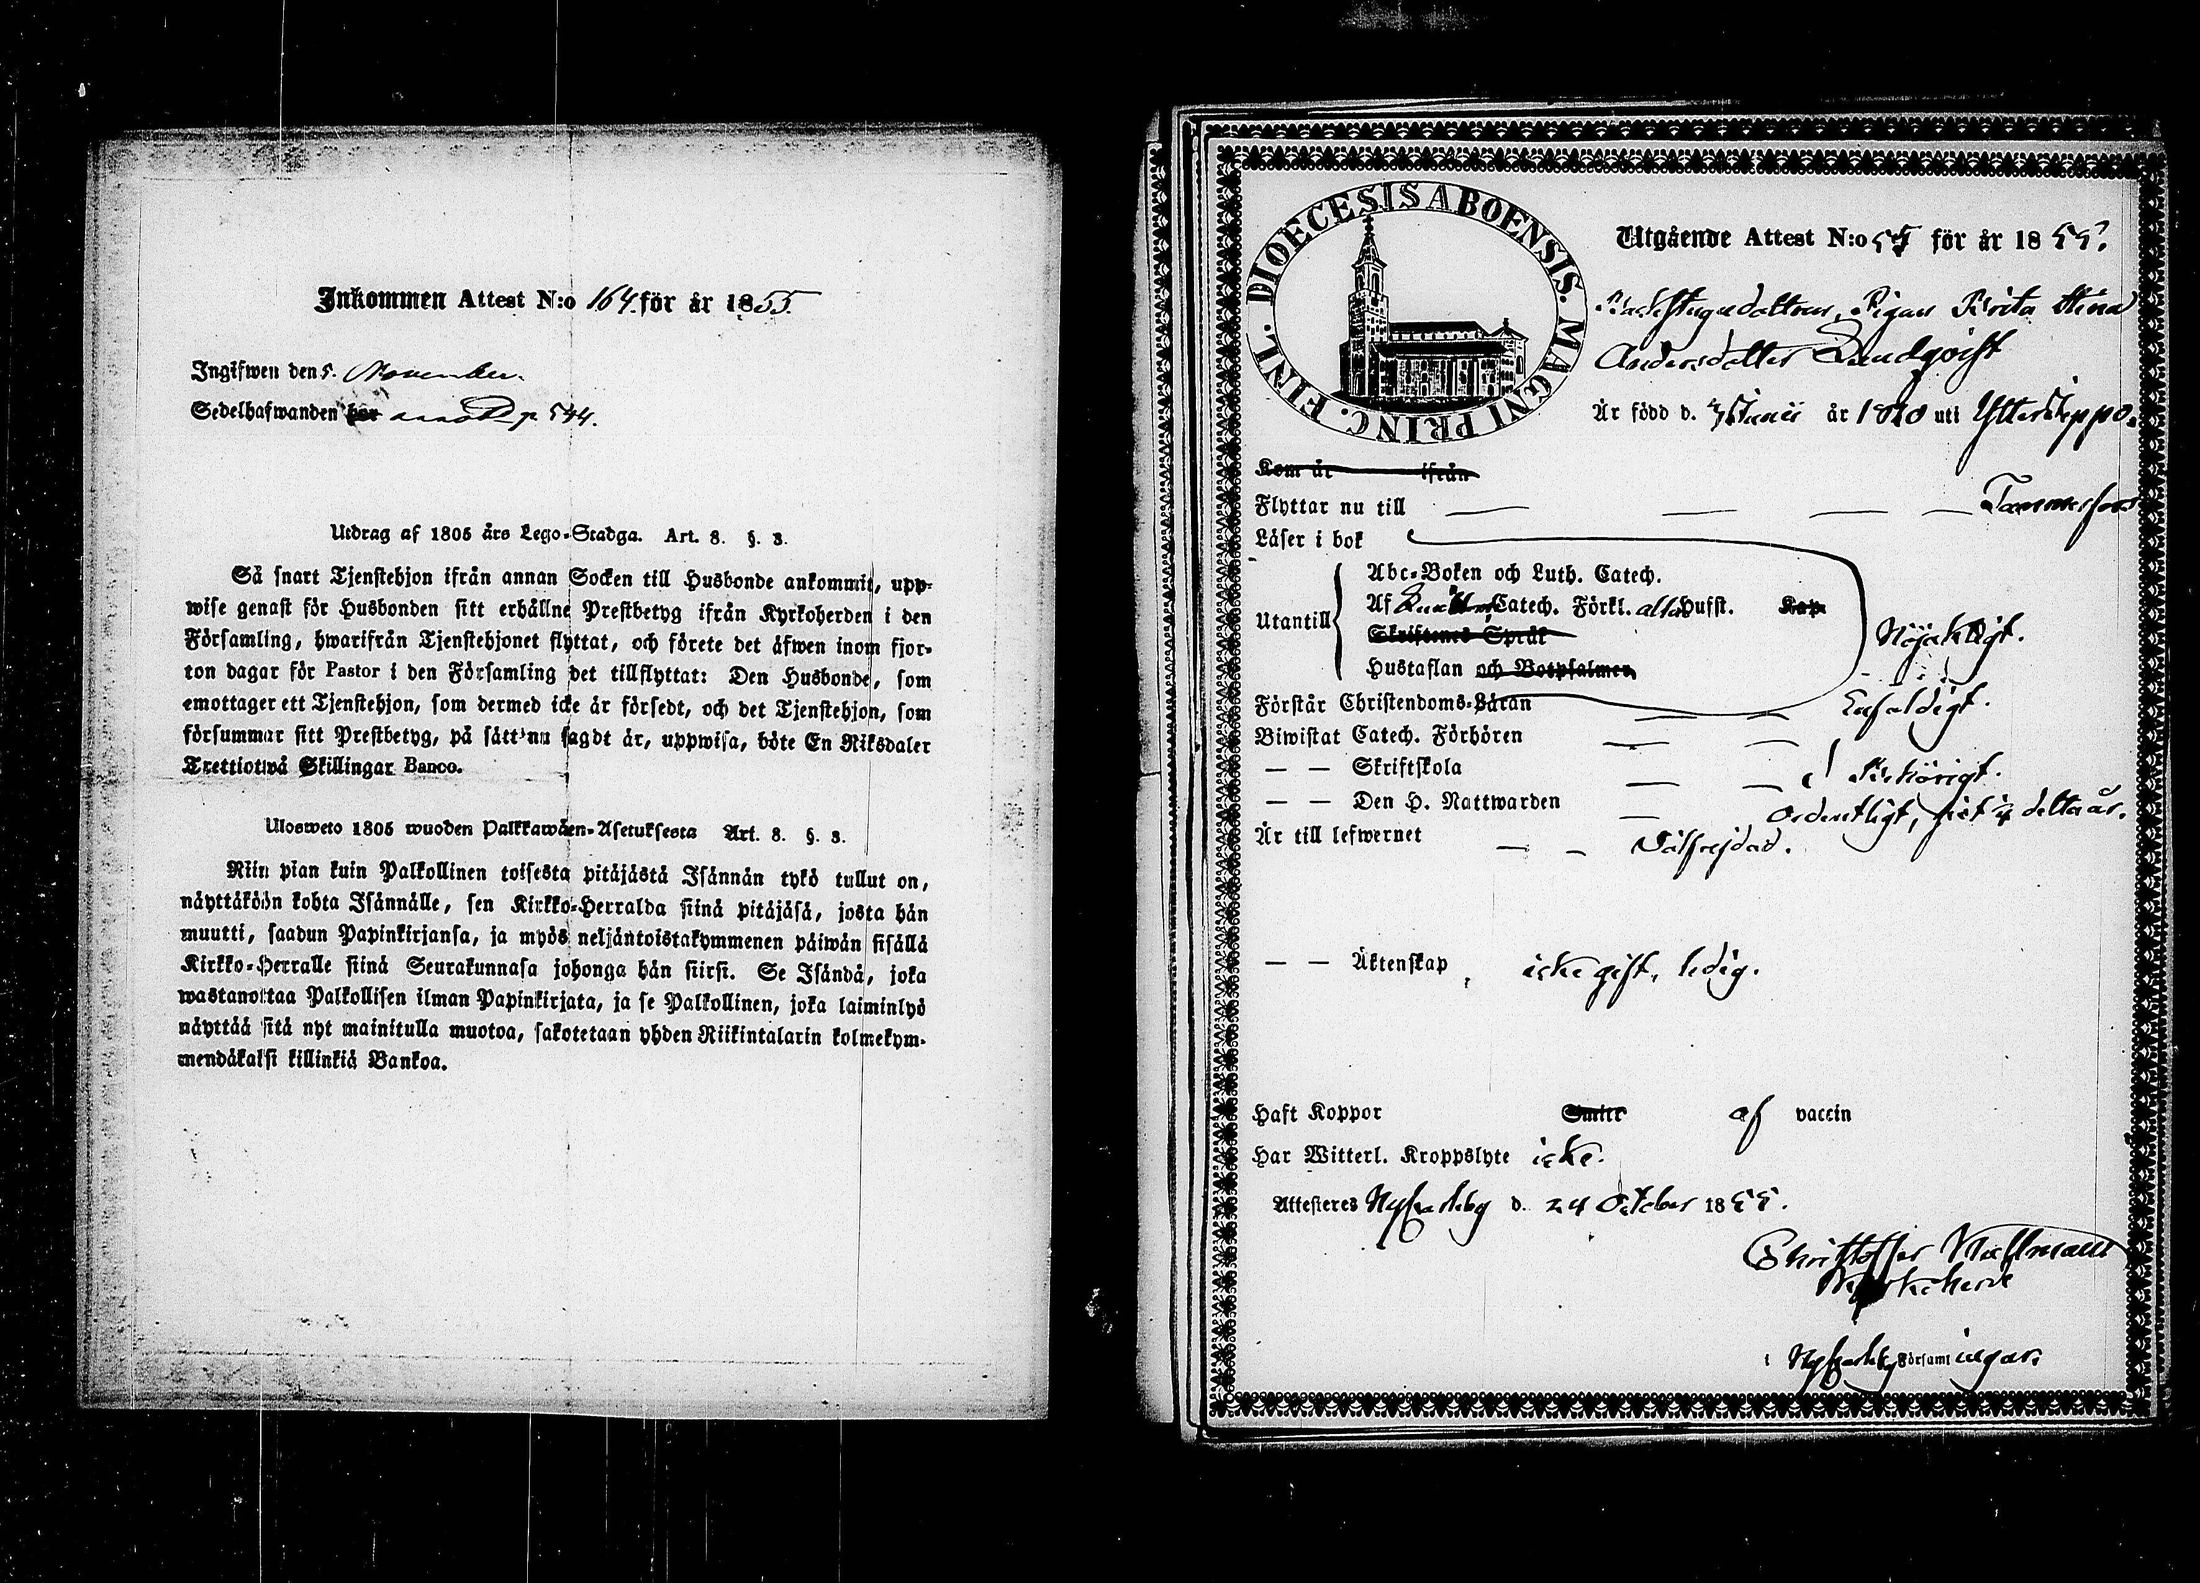 Inkommen Attest N:o 164. för år 1855.
Ingifwen den 5. November.
Sedelhafwanden har p 544.
Utdrag af 1805 års Lego-Stadga. Art. 8. §. 3.
Så snart Tjenstehjon ifrån annan Socken till Husbonde ankommit, upp-
wise genast för Husbonden sitt erhållne Prestbetyg ifrån Kyrkoherden i den
Församling, hwarifrån Tjenstehjonet flyttat, och förete det äfwen inom fjor-
ton dagar för Pastor i den Församling det tillflyttat: Den Husbonde, som
emottager ett Tjenstehjon, som dermed icke är försedt, och det Tjenstehjon, som
försummar sitt Prestbetyg, på sätt nu sagdt är, uppwisa, böte En Riksdaler
Trettiotwå Skillingar Banco.
Ulosweto 1805 wuoden Palkkawäen-Asetuksesta Art. 8. §. 3.
Niin pian kuin Palkollinen toisesta pitäjästä Isännän tykö tullut on,
näyttäköön kohta Isännälle, sen Kirkko-Herralda siinä pitäjäsä, josta hän
muutti, saadun Papinkirjansa, ja myös neljäntoistakymmenen päiwän sisällä
Kirkko-Herralle siinä Seurakunnasa johonga hän siirsi. Se Isändä, joka
wastanottaa Palkollisen ilman Papinkirjata, ja se Palkollinen, joka laiminlyö
näyttää sitä nyt mainitulla muotoa, sakotetaan yhden Riikintalarin kolmekym-
mendäkaksi killinkiä Bankoa.
DIOECESIS ABOENSIS. MAGNI PRINC. FINL.
Utgående Attest N:o för år 1855.
Backstugudottren, Pigan Brita Stina
Andersdotter Lundqvist
Är född d. Junii år uti Ytterjeppo.
Kom år ifrån
Flyttar nu till Tammerfors
Läser i bok
Abc-Boken och Luth. Catech.
Utantill Af Catech. Förkl. alla Hufst. Kap.
Skriftenes Språk
Nöjaktligt.
Hustaflan och Botpsalmer,
Förstår Christendoms-Läran Enfaldigt.
Biwistat Catech. Förhören
— — Skriftskola Behörigt.
— — Den H. Nattwarden ordentligt, sist i detta år.
Är till lefwernet Välfrejdad.
— — Äktenskap, icke gift, ledig.
Haft Koppor Smitt af vaccin
Har Witterl. Kroppslyte icke.
Attesteres Nykarleby d. 24 October 1855.
Christoffer
Kyrkoherde
i Nykarleby Församlingar.